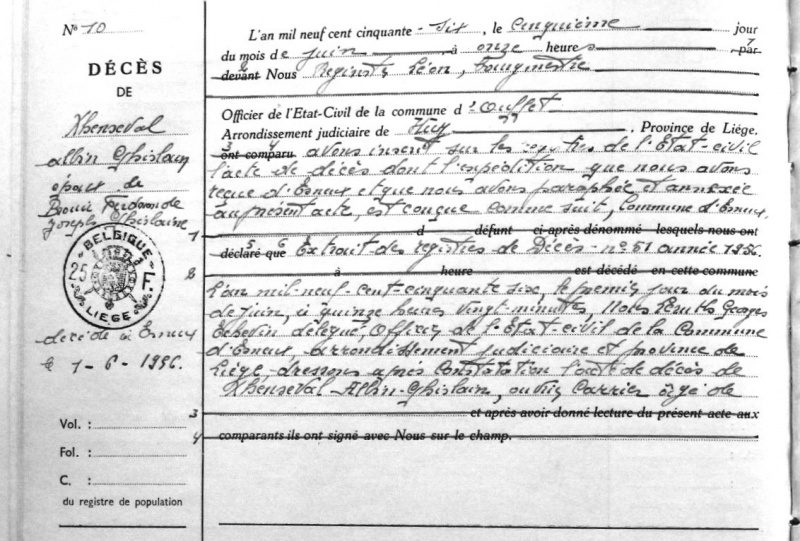 No 10
DÉCÈS
DE
Xhenseval
Albin Ghislain
époux de
Ferdinande
Joseph Ghislaine
BELGIQUE
25
LIEGE
décédé à Esneux
le 1-6-1956.
Vol. :
Fol. :
C. :
du registre de population
L'an mil neuf cent cinquante-six, le cinquième jour
du mois de juin à onze heures par
devant Nous Reginster Léon, bourgmestre
Officier de l'Etat-Civil de la commune d'Ouffet
Arrondissement judiciaire de Huy, Province de Liége.
3 4
ont comparu. avons inscrit sur les registres de l'Etat-civil
l'acte de décès dont l'expédition que nous avons
reçue d'Esneux et que nous avons paraphée et annexée
au présent acte, est conçue comme suit, Commune d'Esneux,
1 d défunt ci-après dénommé lesquels nous ont
5 6
déclaré que Extrait des registres de Décès - no 51 année 1956.
2 à heure est décédé en cette commune
L'an mil-neuf-cent-cinquante six, le premier jour du mois
de juin, à quinze heures vingt minutes, Nous Georges
délégué, Officier de l'Etat-civil de la Commune
d'Esneux, arrondissement judiciaire et province de
Liége, dressons après Constatation l'acte de décès de
Xhenseval Albin-Ghislain, ouvrier carrier âgé de
3 et après avoir donné lecture du présent acte aux
4 comparants ils ont signé avec Nous sur le champ.